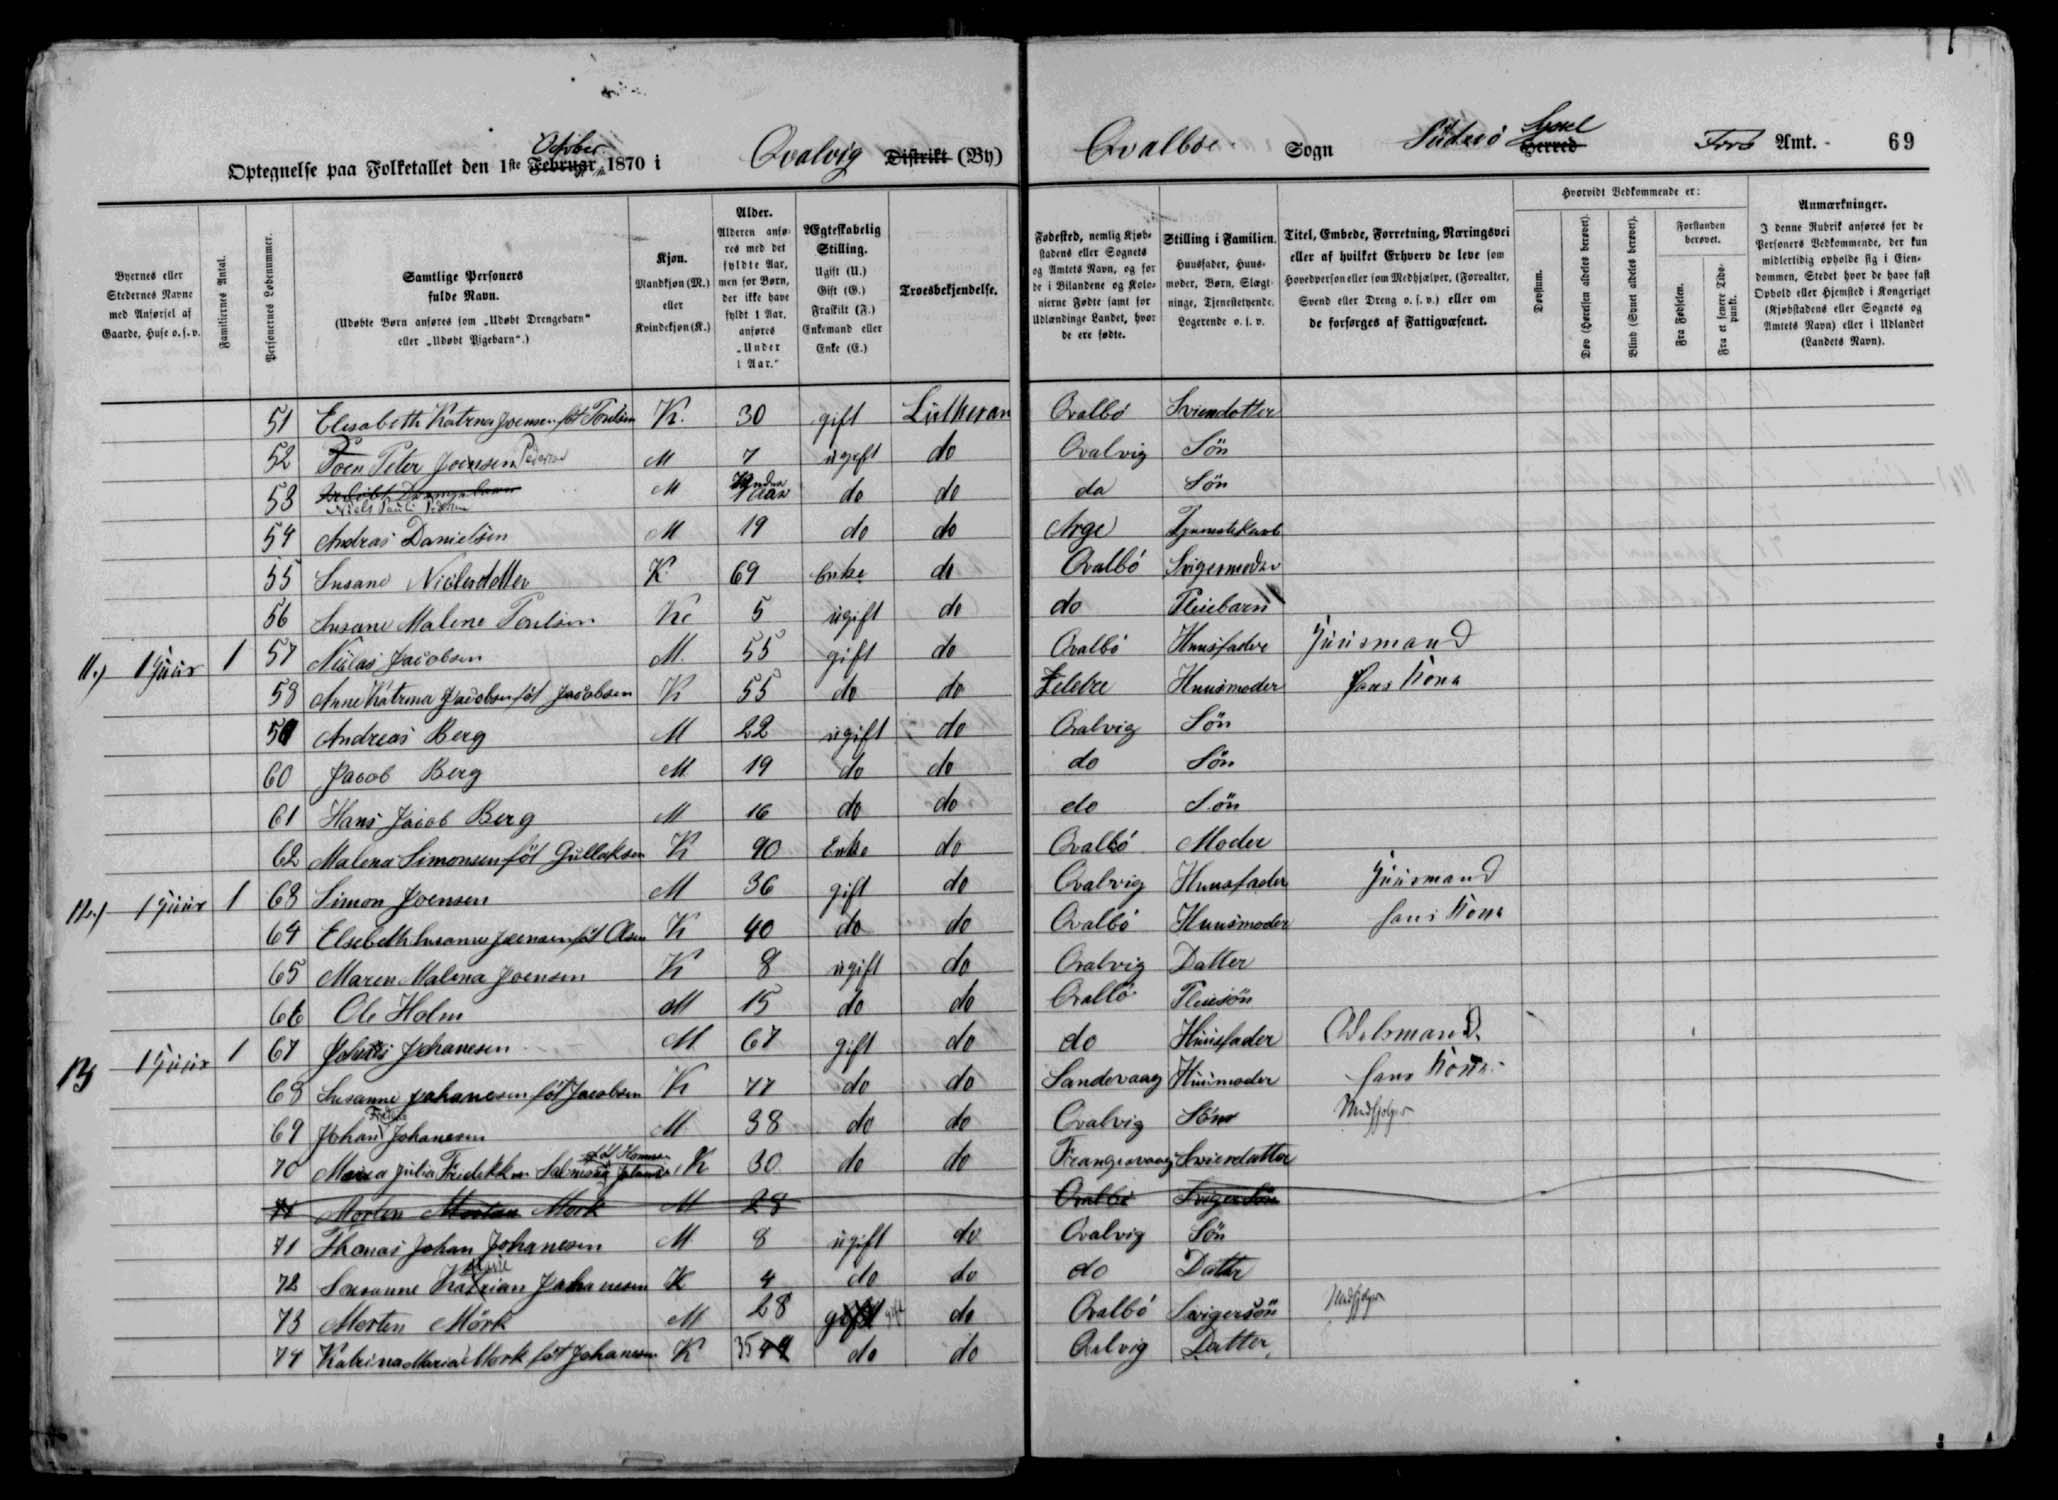 Optegnelse paa Folketallet den 1ste Februar October 1870 i Qvalvig Distrikt (By) Qvalböe Sogn Süderö Herred Syssel Færö Amt. 69
Byernes eller Stedernes Navne med Anførsel af Gaarde, Huse o. s. v.
Familiernes Antal.
Personernes Løbenummer.
Samtlige Personers fulde Navn. (Udøbte Børn anføres som „Udøbt Drengebarn“ eller „Udøbt Pigebarn“.)
Kjøn. Mandkjøn (M.) eller Kvindekjøn (K.)
Alder. Alderen anføres med det fyldte Aar, men for Børn, der ikke have fyldt 1 Aar, anføres „Under 1 Aar.“
Ægteskabelig Stilling. Ugift (U.) Gift (G.) Fraskilt (F.) Enkemand eller Enke (E.)
Troesbekjendelse.
Fødested, nemlig Kjøbstadens eller Sognets og Amtets Navn, og for de i Bilandene og Kolonierne Fødte samt for Udlændinge Landet, hvor de ere fødte.
Stilling i Familien. Huusfader, Huusmoder, Børn, Slægtninge, Tjenestetyende, Logerende o. s. v.
Titel, Embede, Forretning, Næringsvei eller af hvilket Erhverv de leve som Hovedperson eller som Medhjælper, (Forvalter, Svend eller Dreng o. s. v.) eller om de forsørges af Fattigvæsenet.
Hvorvidt Vedkommende er:
Døvstum.
Døv (Hørelsen aldeles berøvet).
Blind (Synet aldeles berøvet).
Forstanden berøvet.
Fra Fødselen.
Fra et senere Tidspunkt.
Anmærkninger. I denne Rubrik anføres for de Personers Vedkommende, der kun midlertidig opholde sig i Eiendommen, Stedet hvor de have fast Ophold eller Hjemsted i Kongeriget (Kjøbstadens eller Sognets og Amtets Navn) eller i Udlandet (Landets Navn).
51 Elisabeth Katrina Joensen föt Poulsen K. 30 gift Lutheran Qvalbö Sviendotter
52 Poen Peter Joensen Pedersen M 7 ugift do Qvalvig Sön
53 Niels Pauli M Under 1 Aar do do do Sön
54 Andras Danielsen M 19 do do Arge
55 Susane Niclesdotter K. 69 Enke do Qvalbö Svigermoder
56 Susane Malene Poulsen K. 5 ugift do do Pleiebarn
11.) 1 Huus 1 57 Niclas Jacobsen M. 55 gift do Qvalbö Huusfader Huusmand
58 Anne Katrina Jacobsen föt Jacobsen K 55 do do Huusmoder Hans Kona
59 Andreas Berg M 22 ugift do Qvalvig Sön
60 Jacob Berg M 19 do do do Sön
61 Hans Jacob Berg M 16 do do do Sön
62 Malena Simonsen föt Gullaksen K 90 Enke do Qvalbö Moder
12.) 1 Huus 1 63 Simon Joensen M 36 gift do Qvalvig Huusfader Huusmand
64 Elsebeth Susanne Joensen föt Olsen K 40 do do Qvalbö Huusmoder hans Kona
65 Maren Malena Joensen K 8 ugift do Qvalvig Datter
66 Ole Holm M 15 do do Qvalbö Pleiesön
13 1 Huus 1 67 Johanis Johanesen M 67 gift do do Huusfader Odelsmand
68 Susanne Johanesen föt Jacobsen K 77 do do Sandevaag Huusmoder hans Kona
69 Johan Johanesen M 38 do do Qvalvig Sön Medhjelper
70 Maria Julia Fredekke föt Hammer K 30 do do Frangisvaag Sviendatter
71 Morten Morten Mörk M 28 Qvalbö Svigersön
71 Thomas Johan Johanesen M 8 ugift do Qvalvig Sön
72 Susanne Katrian Marie Johanesen K 4 do do do Datter
73 Morten Mörk M 28 gift gift do Qvalbö Svigersön Medhjelper
74 Katrina Maria Mork föt Johanesen K 35 do do Qvalvig Datter